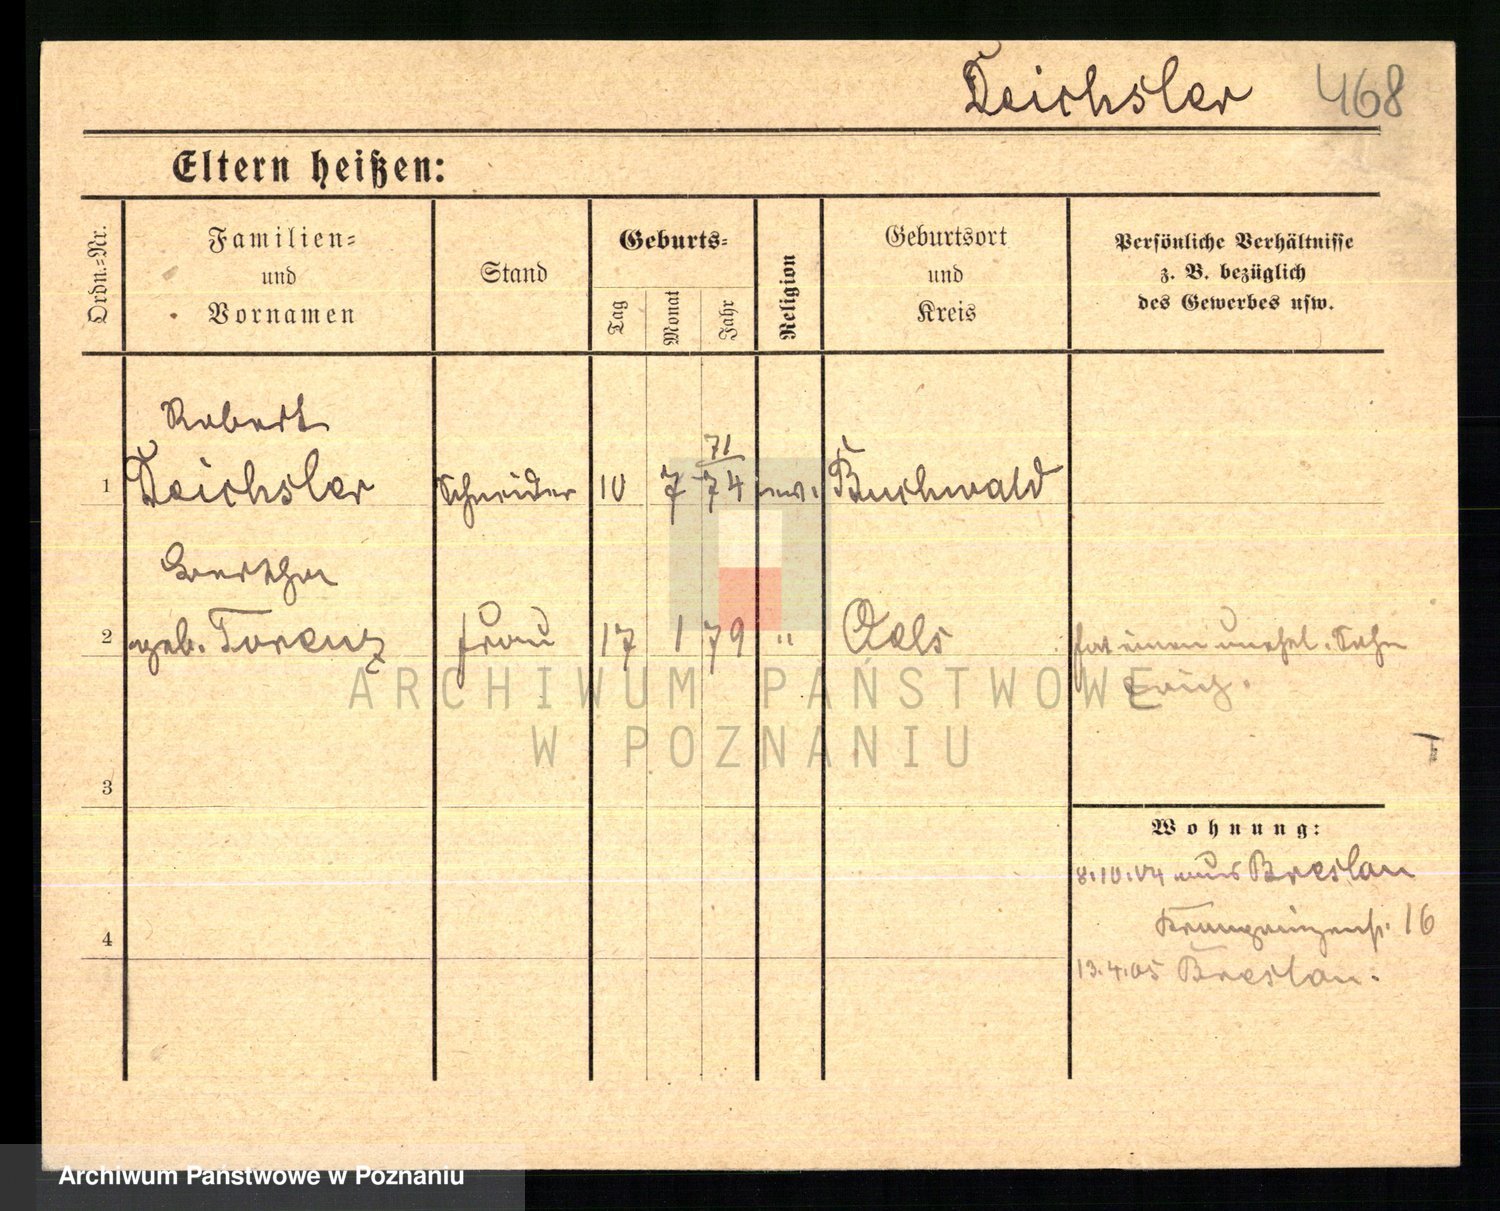 Deichsler 468
Eltern heißen:
Ordn.=Nr.
Familien=
und
Vornamen
Stand
Geburts=
Tag
Monat
Jahr
Religion
Geburtsort
und
Kreis
Persönliche Verhältnisse
z. B. bezüglich
des Gewerbes usw.
Robert
71
1 Deichsler Schneider 10 7 74 ev. Buchwald
Bertha
2 geb. Lorenz Frau 17 1 79 " Oels hat einen unehel. Sohn
Erich.
3
Wohnung:
8.10.04 aus Breslau
Kronprinzenstr. 16
4
13.4.05 Breslau.
ARCHIWUM PAŃSTWOWE
W POZNANIU
Archiwum Państwowe w Poznaniu